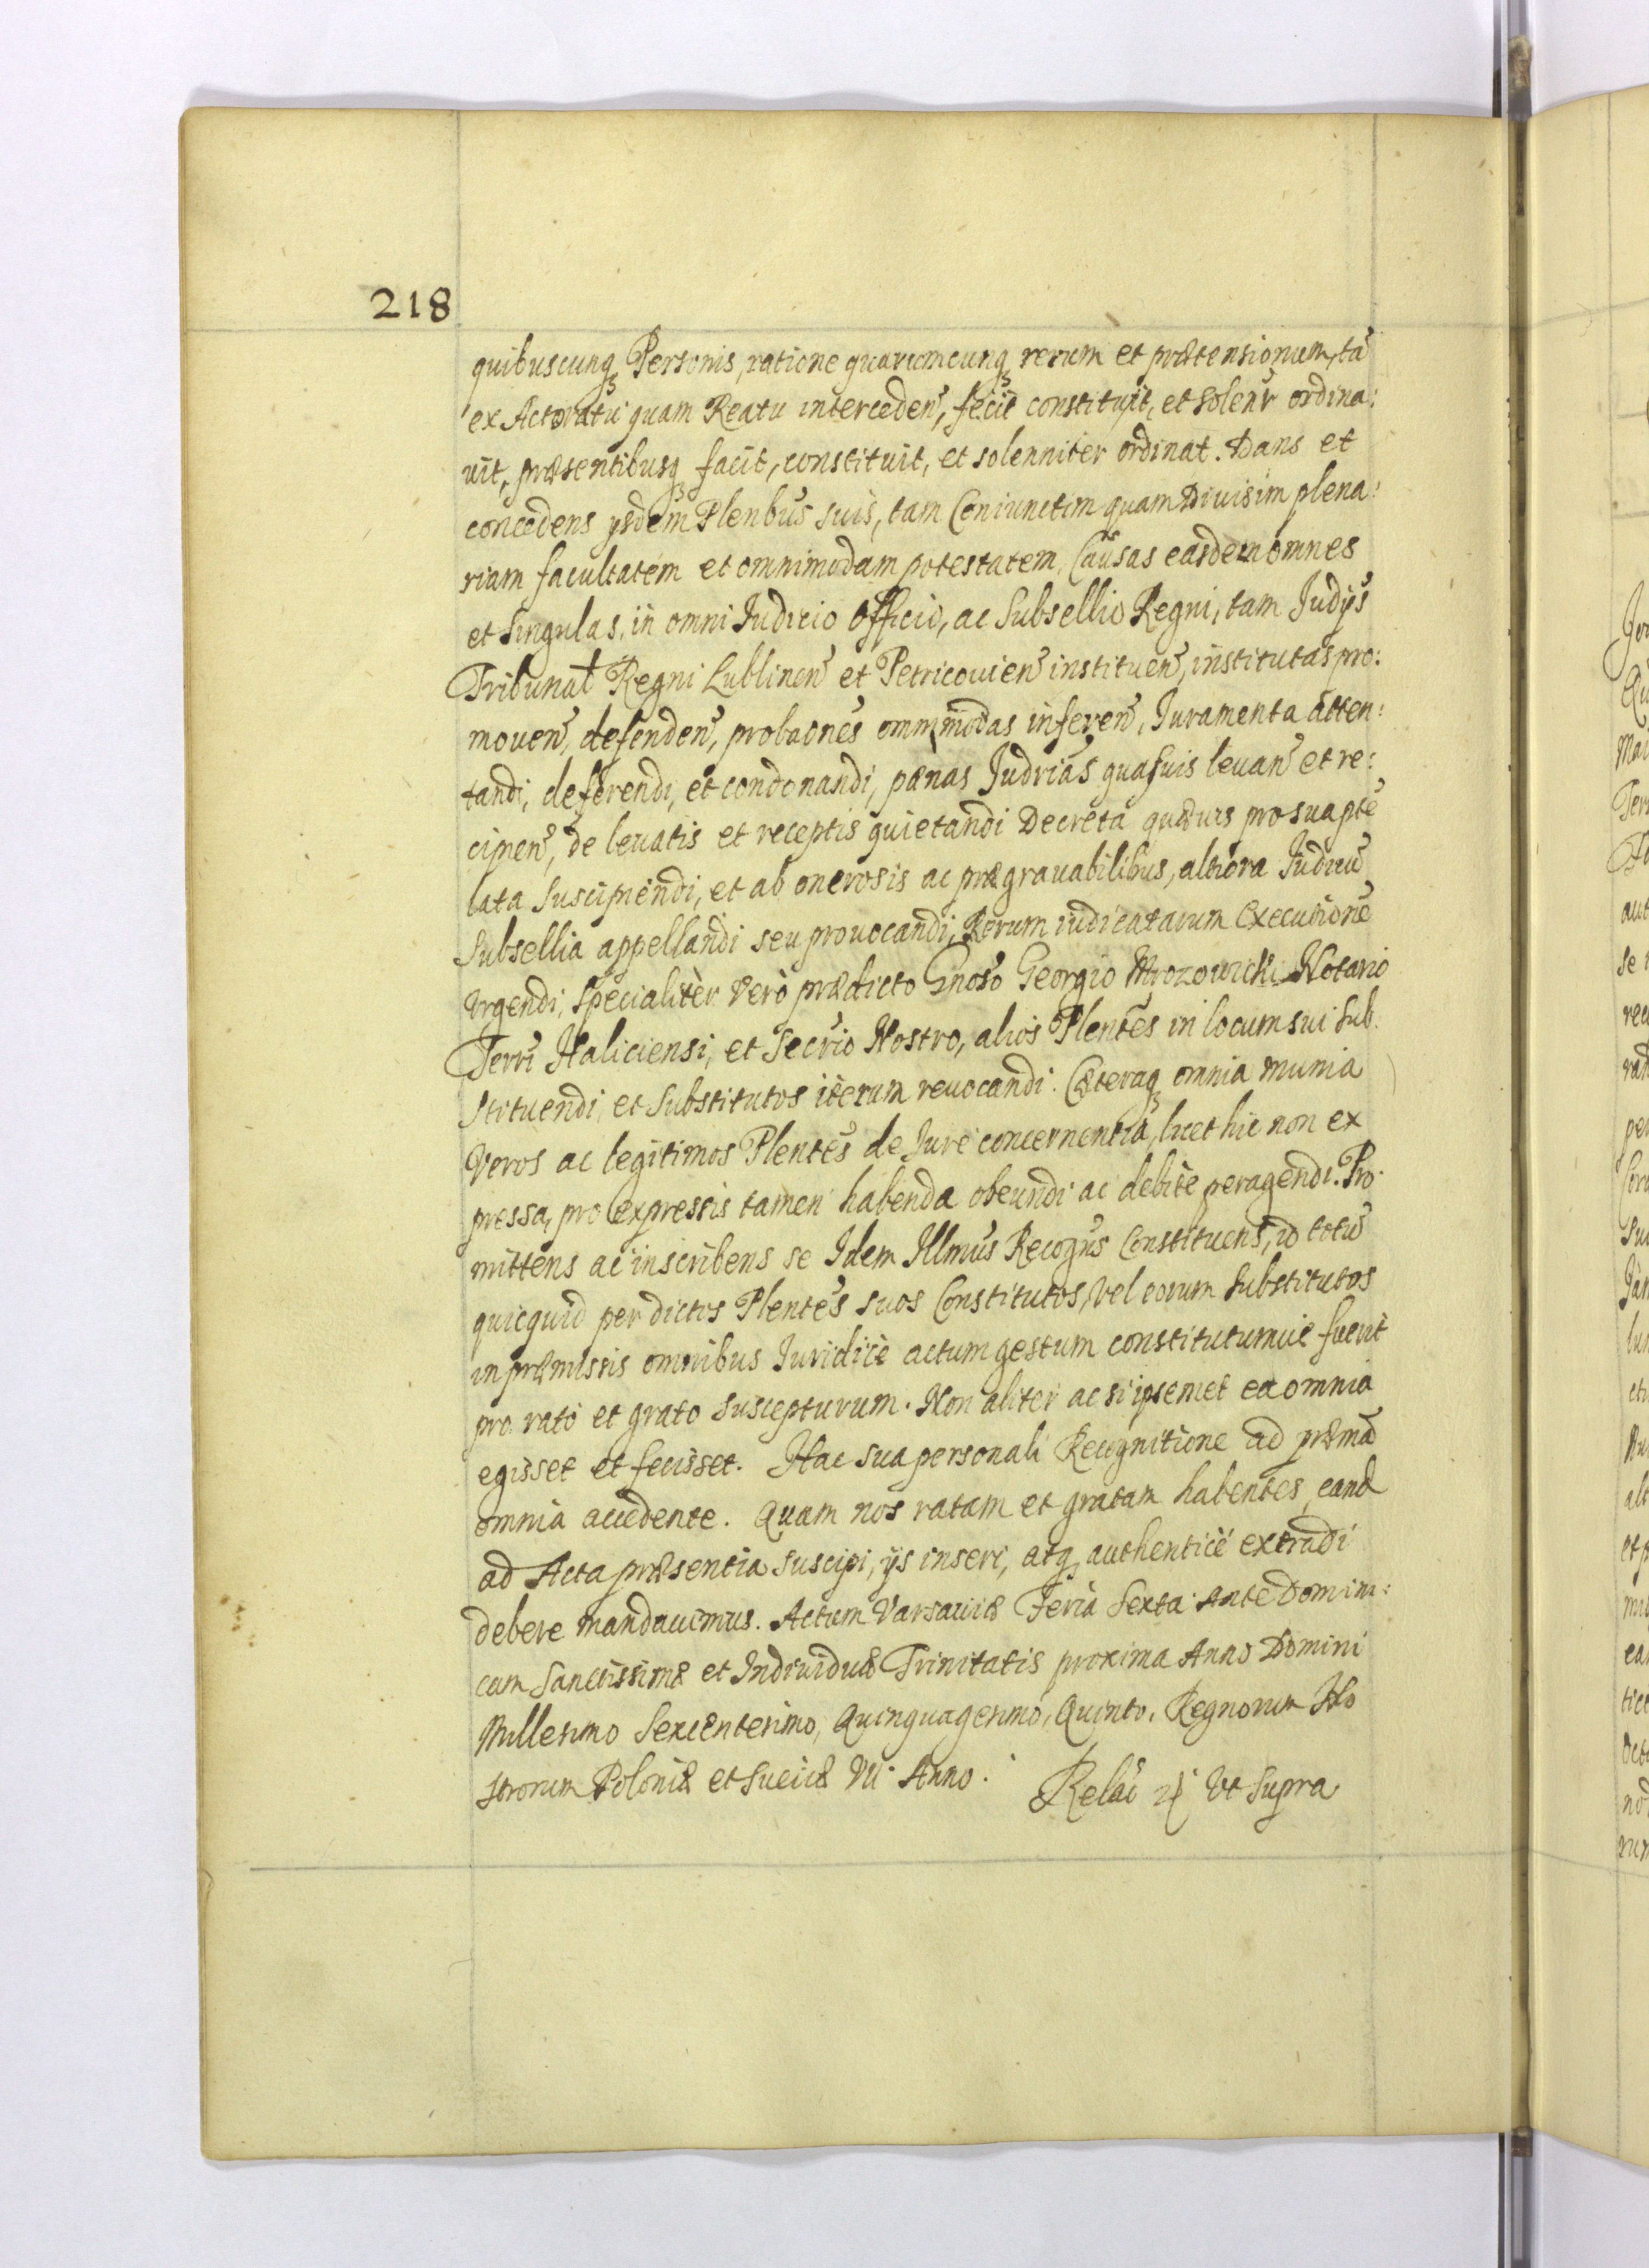 218
quibuscunq₃ Personis, ratione quarumcunq₃ rerum et prætensionum, tā
ex Actoratu quam Reatu interceden̄, fecit constituit, et solenr̄ ordina:
uit, præsentibusq₃ facit, constituit, et solenniter ordinat. Dans et
concedens ysdem Plenbūs suis, tam Coniunctim quam Diuisim plena:
riam facultatem et omnimodam potestatem, Causas easdem omnes
et singulas, in omni Iudicio Officio, ac Subsellio Regni, tam Judijs̄
Tribunal Regni Lublinen̄ et Petricouien̄ instituen̄, institutas pro:
mouen̄, defenden̄, probaōnes omnimodas inferen̄, Iuramenta atten:
tandi, deferendi, et condonandi, pœnas Judrīas quasuis leuan̄ et re:
cipien̄, de leuatis et receptis quietandi Decreta quæuis pro sua pte̅
lata suscipiendi, et ab onerosis ac prægrauabilibus, altiora Judicū
Subsellia appellandi seu prouocandi, Rerum iudicatarum Executionē
vrgendi, specialiter Verò prædicto Gnoso̅ Georgio Mrozowicki Notario
Terri̅ Haliciensi, et Secri̅o Nostro, alios Plente̅s in locum sui sub.
stituendi, et substitutos iterum reuocandi. Cæteraq₃ omnia munia
Veros ac legitimos Plente̅s de Iure concernentia, licet hic non ex
pressa, pro expressis tamen habenda obeundi ac debite peragendi. Pro
mittens ac inscribens se Idem Illmus̅ Recogn̅s Constituens, id totū
quicquid per dictos Plente̅s suos Constitutos, Vel eorum substitutos
in præmissis omnibus Iuridicè actum gestum constitutumue fuerit
pro rato et grato suscepturum. Non aliter ac si ipsemet ea omnia
egisset et fecisset. Hac sua personali Recognitione ad præmā
omnia accedente. Quam nos ratam et gratam habentes, eand
ad Acta præsentia suscipi, ijs inseri, atq₃ authenticè extradi
debere mandauimus. Actum Varsauiæ Feria Sexta Ante Domini:
cam Sanctissimæ et Indiuiduæ Trinitatis proxima Anno Domini
Millesimo Sexcentesimo, Quinquagesimo, Quinto. Regnorum No
strorum Poloniæ et Sueciæ VII. Anno.
Relāc ut Supra